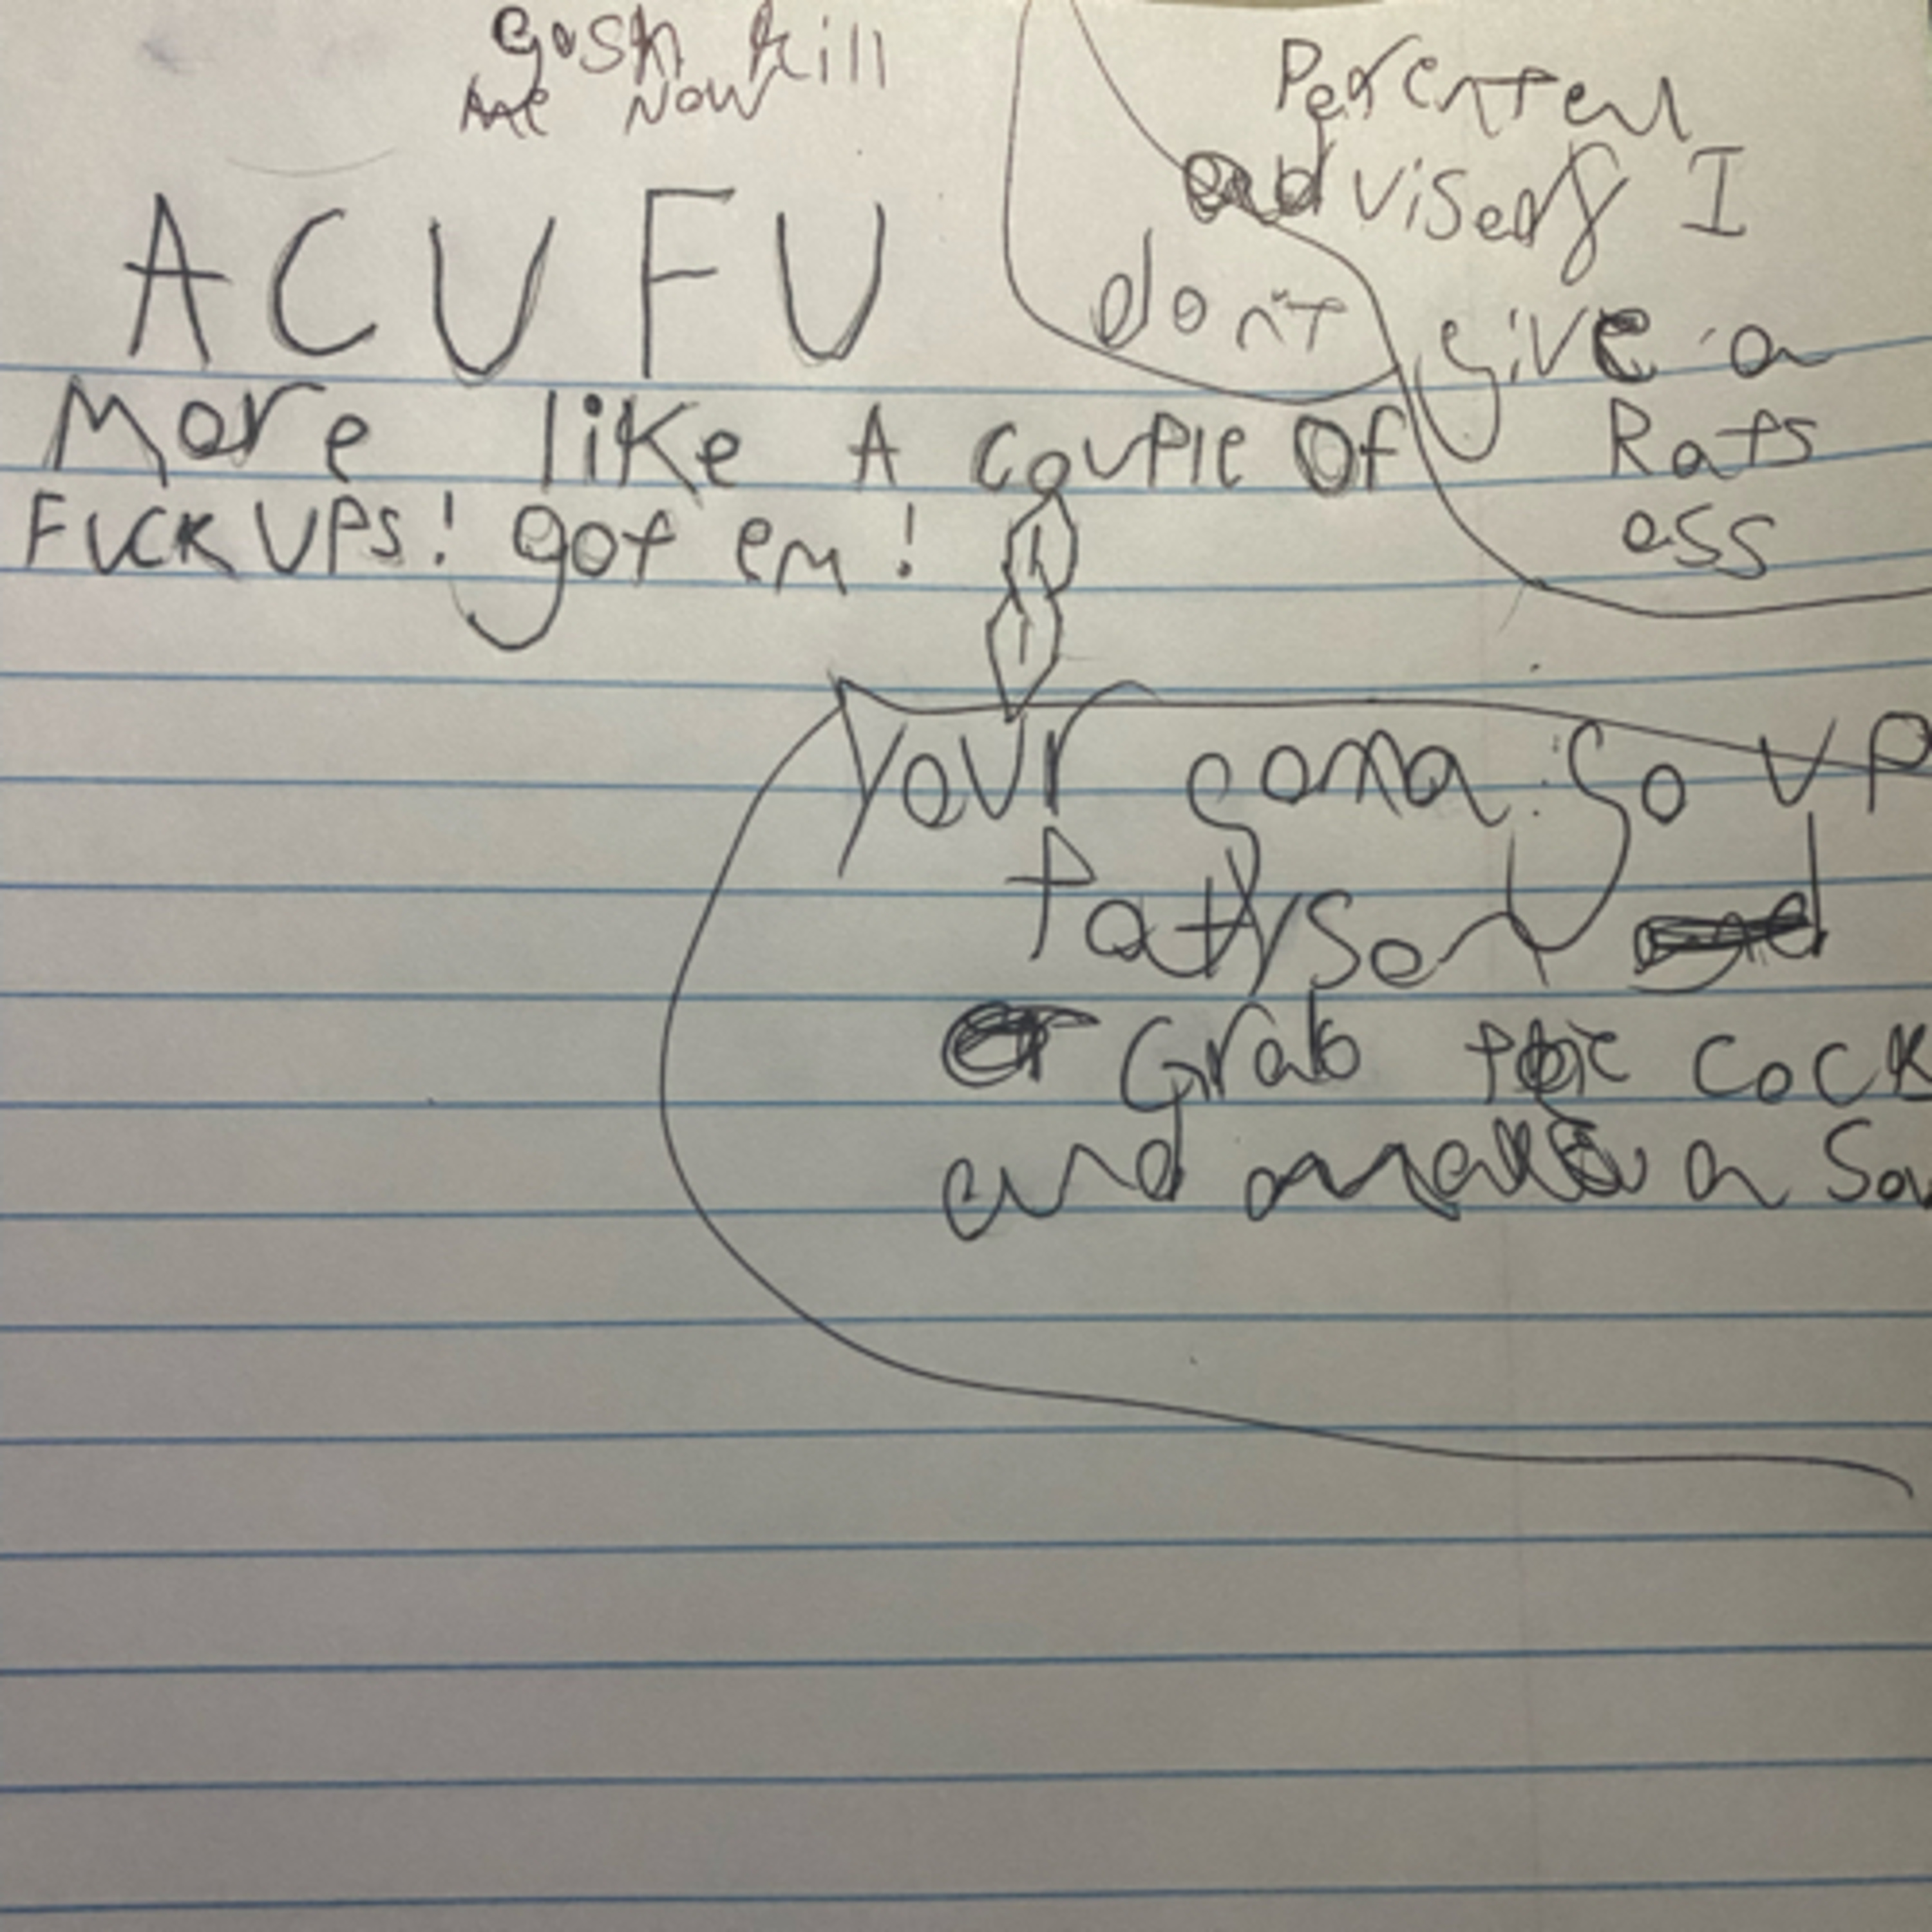 gosh kill
me now
A C U F U
More like A couple Of
FUCK UPS! got em!
Perentel
adviserf I
don't give a
Rats
ass
your gona go up
Patyson
Grab the cock
and a